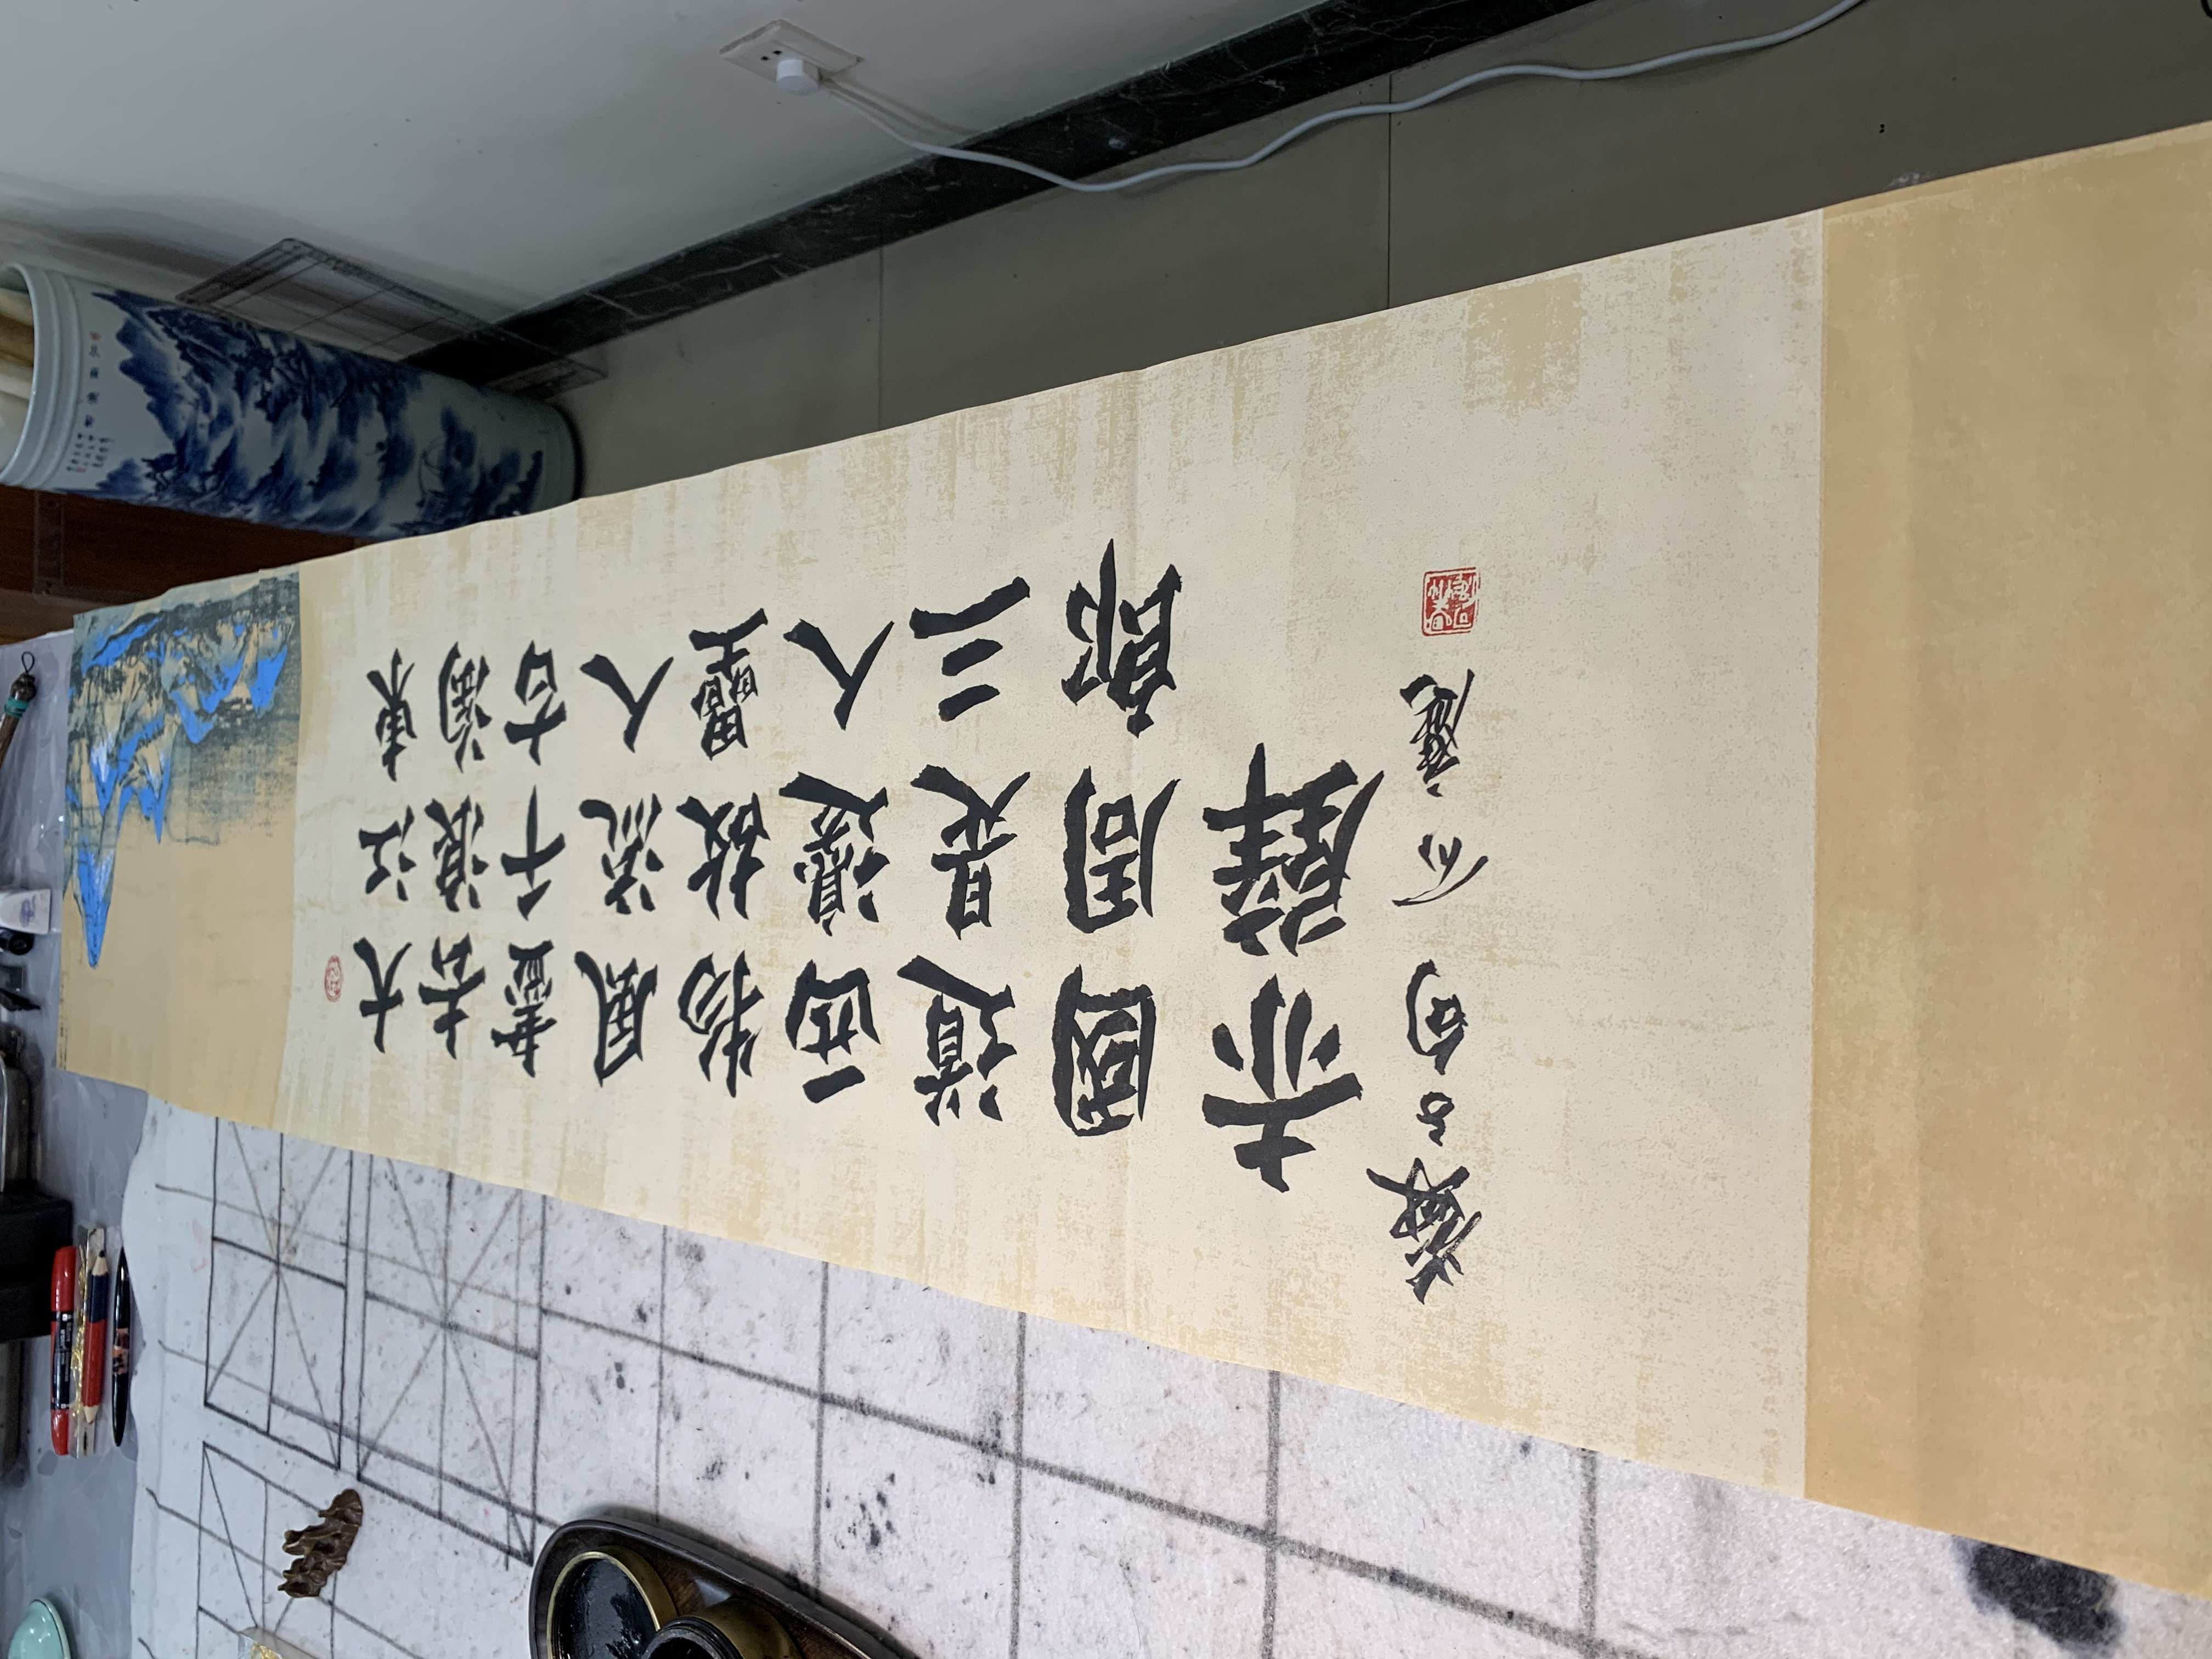 大江東
去浪淘
盡千古
風流人
物故壘
西邊人
道是三
國周郎
赤壁
蘇句